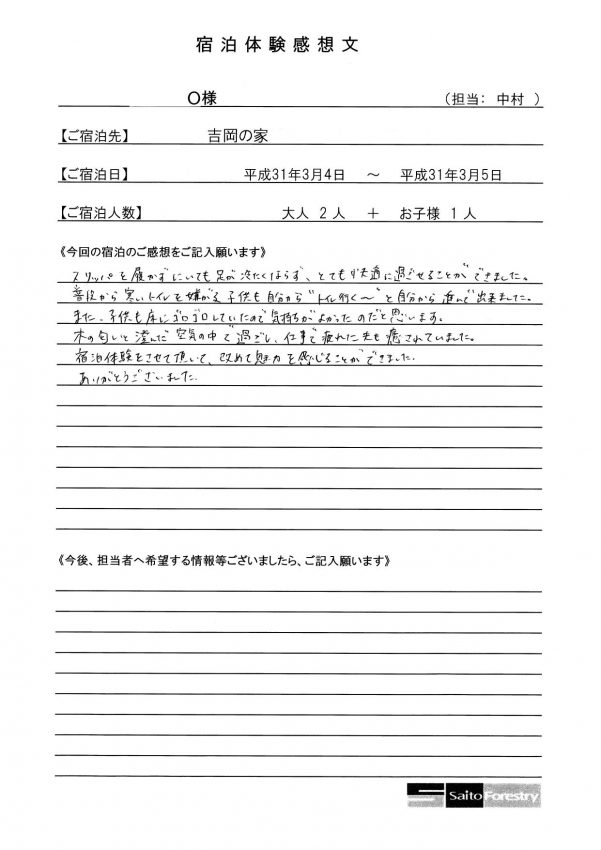 宿泊体験感想文
O様 （担当： 中村 ）
【ご宿泊先】 吉岡の家
【ご宿泊日】 平成31年3月4日 ～ 平成31年3月5日
【ご宿泊人数】 大人 2人 ＋ お子様 1人
《今回の宿泊のご感想をご記入願います》
スリッパを履かずにいても足が冷たくならず、とても快適に過ごせることができました。
普段から寒いトイレを嫌がる子供も自分から"トイレ行く〜"と自分から進んで出来ました。
また、子供も床にゴロゴロしていたので気持ちがよかったのだと思います。
木の匂いと澄んだ空気の中で過ごし、仕事で疲れた夫も癒されていました。
宿泊体験をさせて頂いて、改めて魅力を感じることができました。
ありがとうございました。
《今後、担当者へ希望する情報等ございましたら、ご記入願います》
Saito Forestry